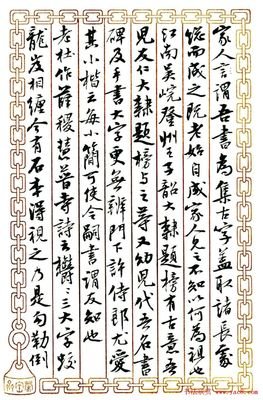 家人言謂吾書為集古字盖取諸長處
總而成之既老始自成家人見之不知以何為祖也
江南吴皖登州王子韶大隸題榜有古意吾
兒友仁大隸題榜與之等又幼兒代吾名書
碑及手書大字更無辨門下許侍郎尤愛
其小楷云每小簡可使令嗣書謂友知也
老杜作薛稷慧普寺詩云欝三大字蛟
龍岌相纏今有石本得視之乃是勾勒倒